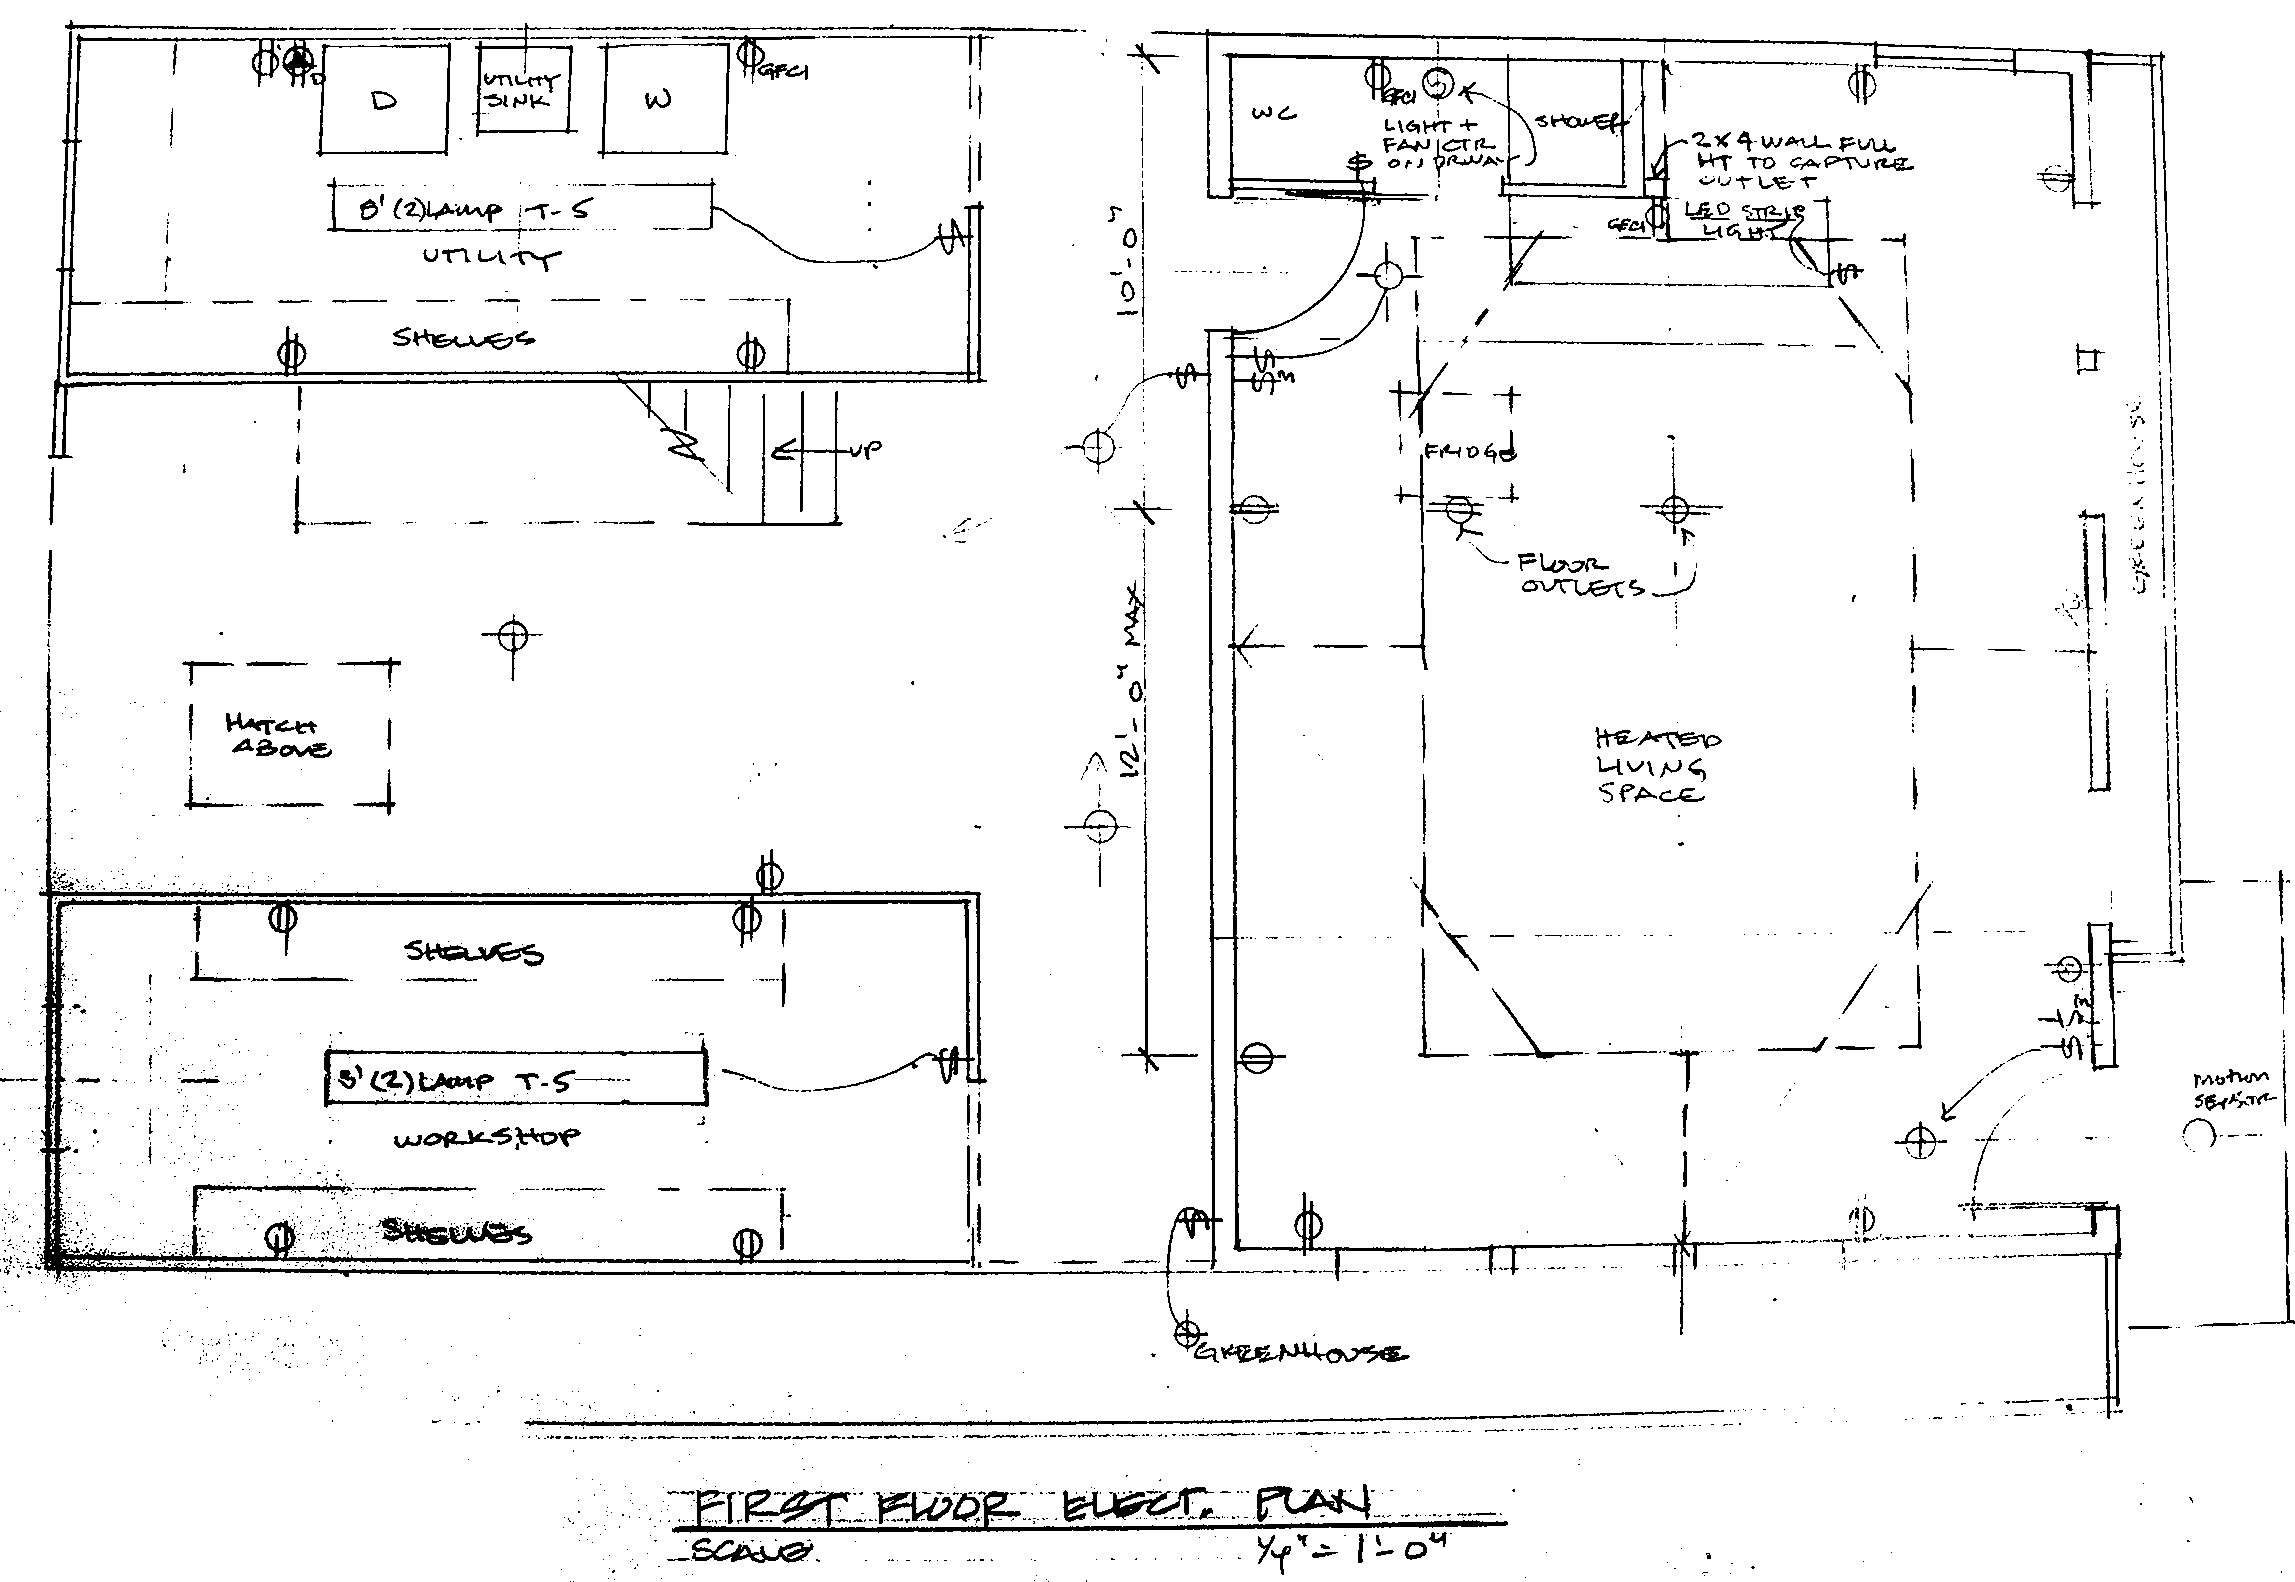 D
D
UTILITY
SINK
W
GFCI
8' (2) LAMP T-5
UTILITY
SHELVES
UP
HATCH
ABOVE
SHELVES
8' (2) LAMP T-5
WORKSHOP
SHELVES
10'-0"
12'-0" MAX
WC
GFCI
LIGHT +
FAN CTR
ON
SHOWER
2 X 4 WALL FULL
HT TO CAPTURE
OUTLET
GFCI
LED STRIP
LIGHT
$
$
$
$
$3
FRIDGE
FLOOR
OUTLETS
HEATED
LIVING
SPACE
GREENHOUSE
$3
$
MOTION
SENSOR
$
$
GREENHOUSE
FIRST FLOOR ELECT. PLAN
SCALE 1/4" = 1'-0"